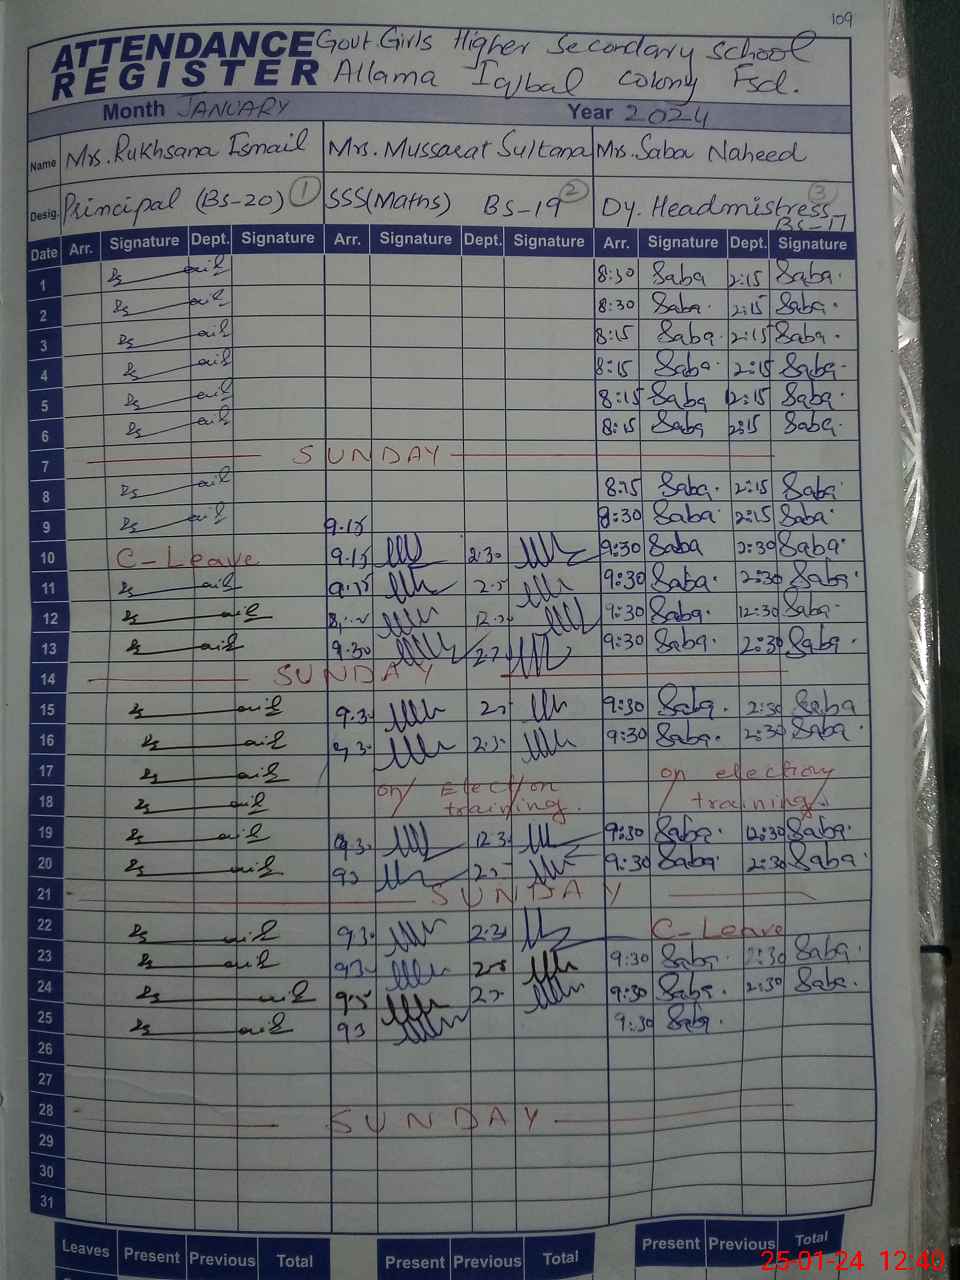 109
ATTENDANCE REGISTER
Govt. Girls Higher Secondary School
Allama Iqbal Colony Fsd.
Month JANUARY Year 2024
Name Mrs. Rukhsana Ismail Mrs. Mussarat Sultana Mrs. Saba Naheed
Desig. Principal (BS-20) 1 SSS(Maths) BS-19 2 Dy. Headmistress 3
BS-17
Date Arr. Signature Dept. Signature Arr. Signature Dept. Signature Arr. Signature Dept. Signature
1 8:30 Saba 2:15 Saba.
2 8:30 Saba. 2:15 Saba.
3 8:15 Saba. 2:15 Saba.
4 8:15 Saba. 2:15 Saba.
5 8:15 Saba 2:15 Saba.
6 8:15 Saba 2:15 Saba.
7 SUNDAY
8 8:15 Saba. 2:15 Saba.
9 9.15 8:30 Saba. 2:15 Saba.
10 C-Leave 9.15 2.30 9:30 Saba 2:30 Saba.
11 9:30 Saba. 2:30 Saba.
12 9:30 Saba. 12:30 Saba.
13 9.30 9:30 Saba. 2:30 Saba.
14 SUNDAY
15 9.3 9:30 Saba. 2:30 Saba
16 9.3 2.3 9:30 Saba. 2:30 Saba.
17 on Election on election
18 training. training.
19 9.3 12.3 9:30 Saba. 12:30 Saba.
20 93 9:30 Saba. 2:30 Saba.
21 SUNDAY
22 93 2.3 C-Leave
23 93 9:30 Saba. 2:30 Saba.
24 9:30 Saba. 2:30 Saba.
25 93 9:30 Saba.
26
27
28 SUNDAY
29
30
31
Leaves Present Previous Total Present Previous Total Present Previous Total
25-01-24 12:40